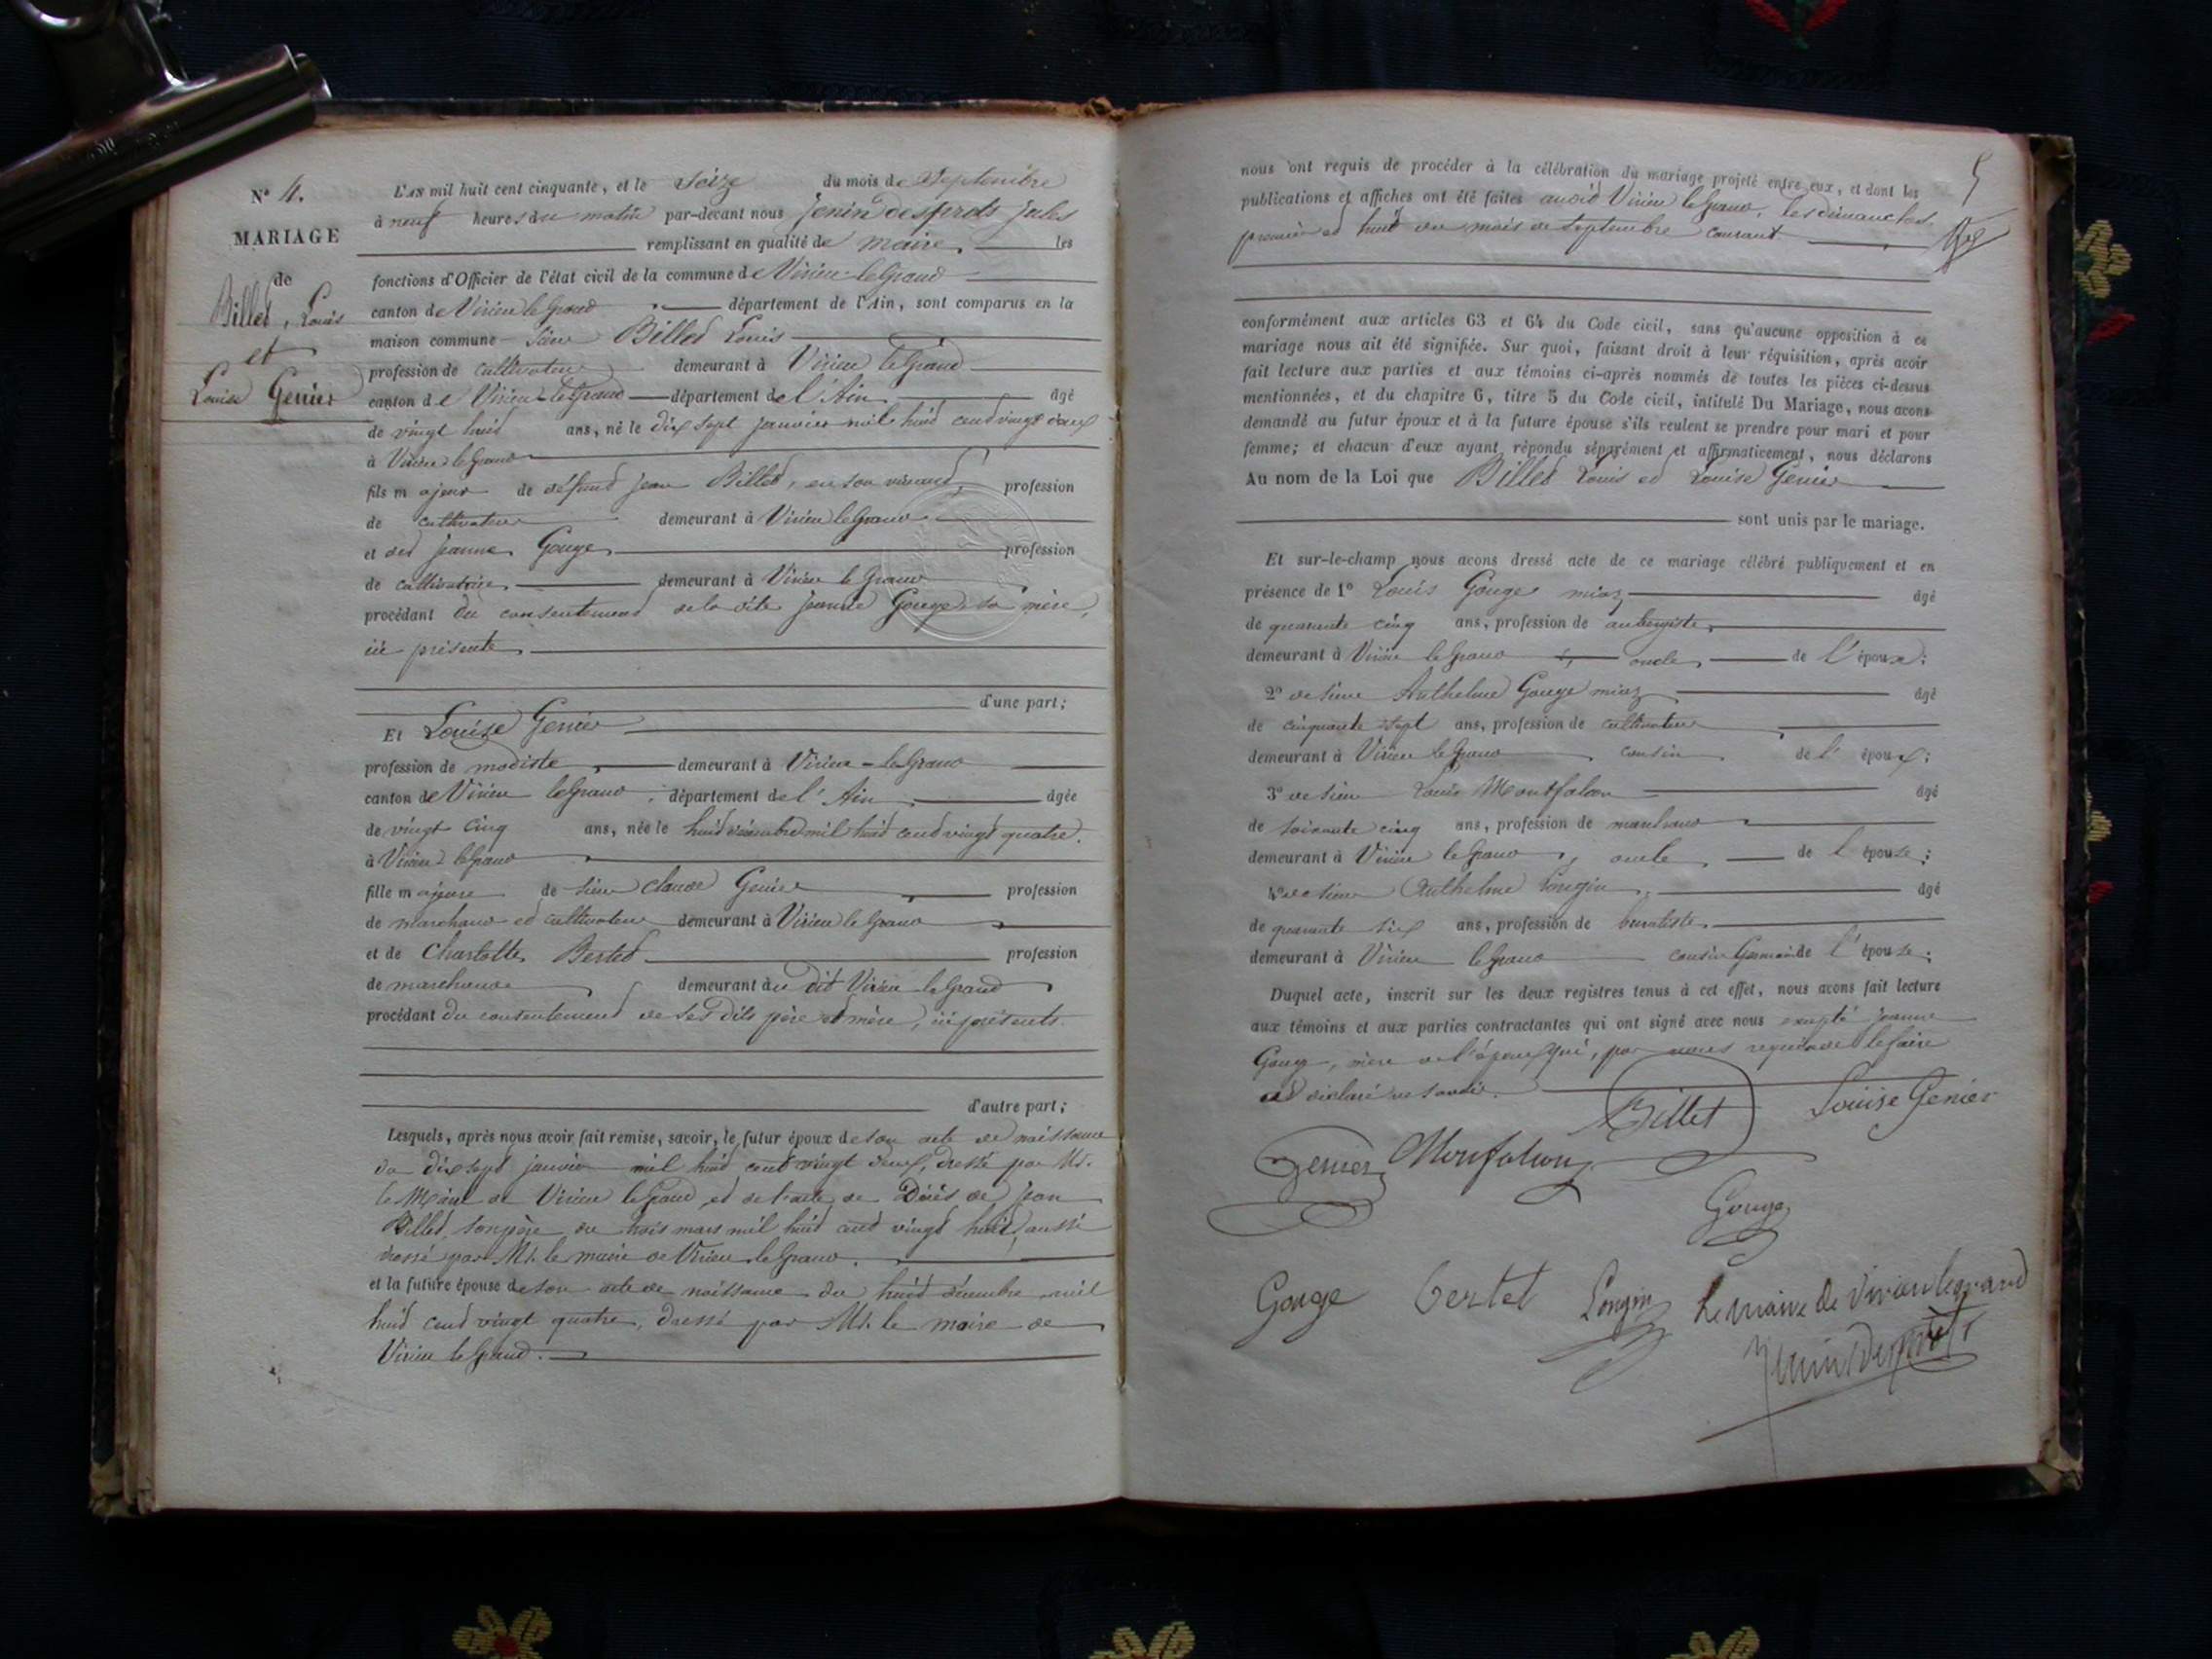 N° 4.
MARIAGE
de
Billet, Louis
et
Louise Genier
L'AN mil huit cent cinquante, et le Seize du mois de Septembre
à neuf heures du matin par-devant nous Jenin desprots Jules
remplissant en qualité de maire, les
fonctions d'Officier de l'état civil de la commune de Virieu-le-Grand
canton de Virieu le Grand département de l'Ain, sont comparus en la
maison commune Sieur Billet Louis
profession de cultivateur demeurant à Virieu le Grand
canton de Virieu-le-Grand département de l'Ain âgé
de vingt huit ans, né le dix sept janvier mil huit cent vingt deux
à Virieu le Grand
fils majeur de défunt Jean Billet, en son vivant, profession
de cultivateur demeurant à Virieu le Grand
et de Jeanne Gouge profession
de cultivatrice demeurant à Virieu le Grand
procédant du consentement de la dite Jeanne Gouge sa mère,
ici présente,
d'une part;
Et Louise Genier
profession de modiste, demeurant à Virieu-le-Grand
canton de Virieu le Grand, département de l'Ain, âgée
de vingt cinq ans, née le huit décembre mil huit cent vingt quatre.
à Virieu le Grand
fille majeure de sieur Claude Genier profession
de marchand et cultivateur demeurant à Virieu le Grand
et de Charlotte Bertet profession
de marchande demeurant au dit Virieu le Grand
procédant du consentement de ses dits père et mère, ici présents.
d'autre part;
Lesquels, après nous avoir fait remise, savoir, le futur époux de son acte de naissance
du dix sept janvier mil huit cent vingt deux, dressé par Mr.
le Maire de Virieu le Grand, et de l'acte de Décès de Jean
Billet, son père du trois mars mil huit cent vingt huit, aussi
dressé par Mr. le maire de Virieu le Grand.
et la future épouse de son acte de naissance du huit décembre mil
huit cent vingt quatre, dressé par Mr. le maire de
Virieu le Grand.
5
nous ont requis de procéder à la célébration du mariage projeté entre eux, et dont les
publications et affiches ont été faites au dit Virieu le Grand, les dimanches
premier et huit du mois de Septembre courant.
conformément aux articles 63 et 64 du Code civil, sans qu'aucune opposition à ce
mariage nous ait été signifiée. Sur quoi, faisant droit à leur réquisition, après avoir
fait lecture aux parties et aux témoins ci-après nommés de toutes les pièces ci-dessus
mentionnées, et du chapitre 6, titre 5 du Code civil, intitulé Du Mariage, nous avons
demandé au futur époux et à la future épouse s'ils veulent se prendre pour mari et pour
femme; et chacun d'eux ayant répondu séparément et affirmativement, nous déclarons
Au nom de la Loi que Billet Louis et Louise Genier
sont unis par le mariage.
Et sur-le-champ nous avons dressé acte de ce mariage célébré publiquement et en
présence de 1° Louis Gouge miaz âgé
de quarante cinq ans, profession de aubergiste,
demeurant à Virieu le Grand oncle, de l'époux;
2° de sieur Anthelme Gouge miaz âgé
de cinquante sept ans, profession de cultivateur
demeurant à Virieu le Grand, cousin de l'époux;
3° de sieur Louis Montfalcon âgé
de soixante cinq ans, profession de marchand
demeurant à Virieu le Grand, oncle, de l'épouse;
4° de sieur Anthelme Longin, âgé
de quarante six ans, profession de buraliste,
demeurant à Virieu le Grand cousin Germain de l'épouse;
Duquel acte, inscrit sur les deux registres tenus à cet effet, nous avons fait lecture
aux témoins et aux parties contractantes qui ont signé avec nous excepté Jeanne
Gouge, mère de l'époux qui, par nous requise de le faire
a déclaré ne savoir.
Billet Louise Genier
Genier Monfalcon
Gouge
Gouge Bertet Longin Le maire de Virieu legrand
Jenin Desprots